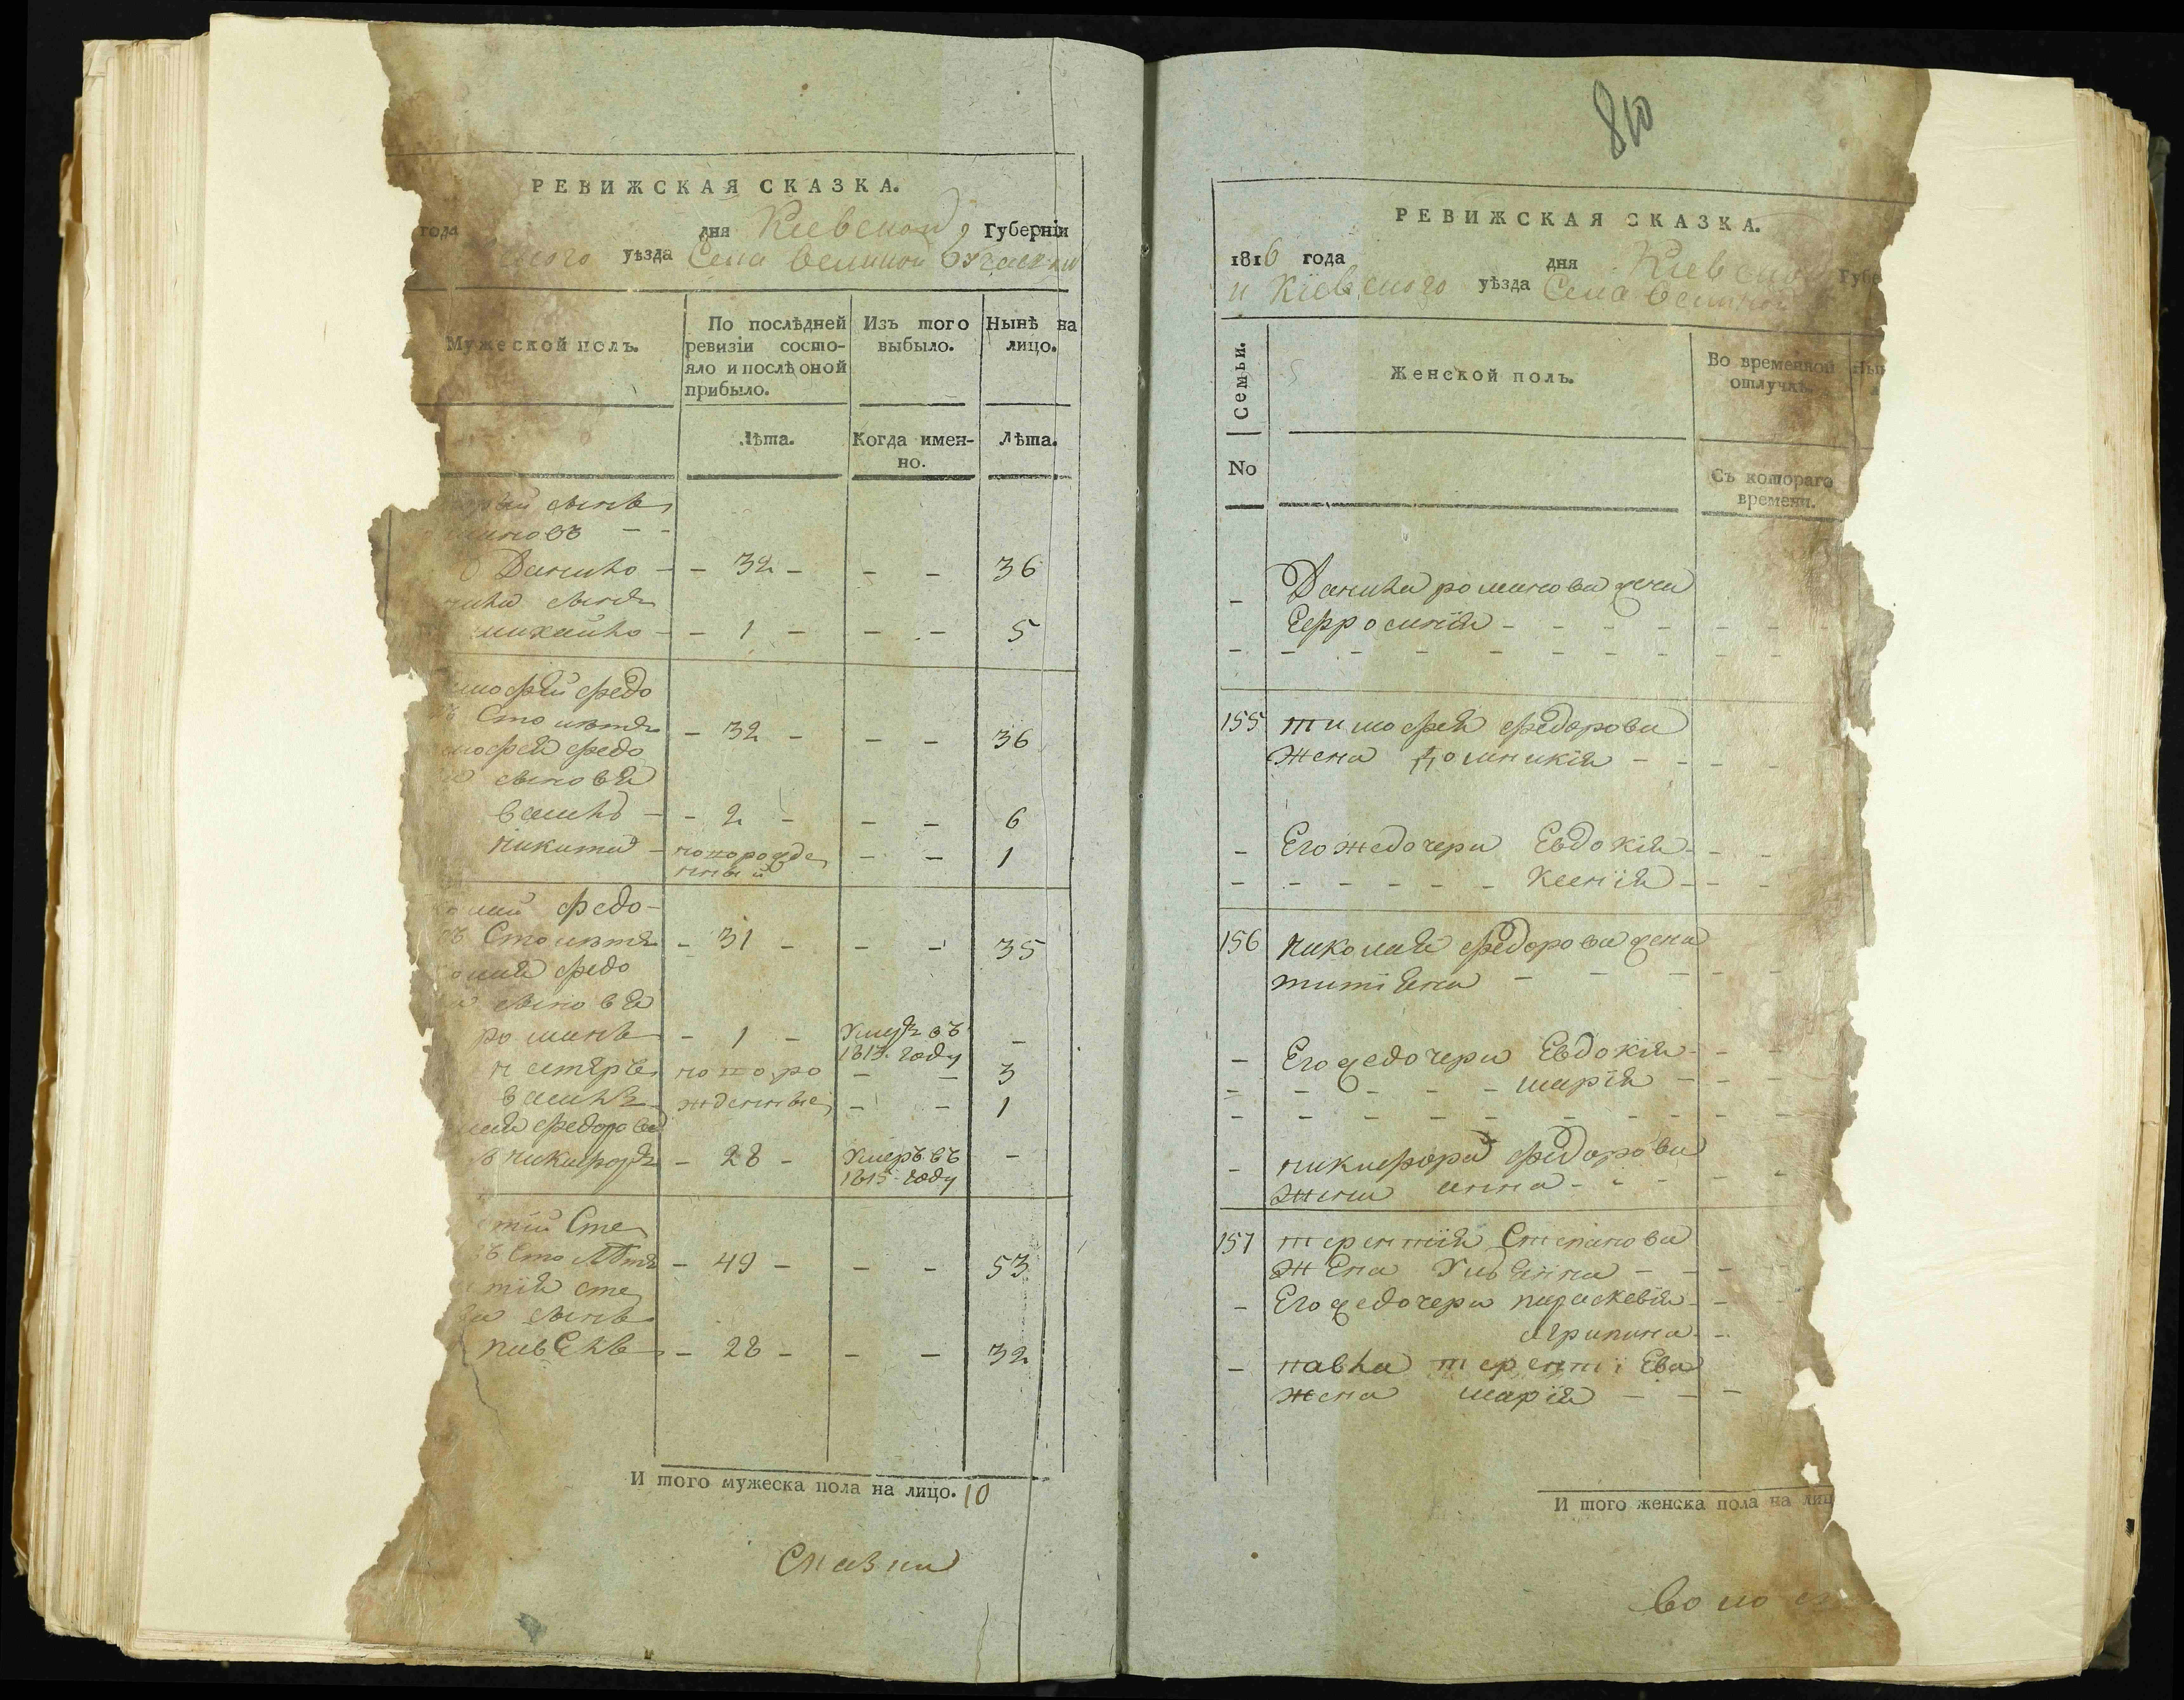 РЕВИЖСКАЯ СКАЗКА.
года дня Киевской Губерніи
уѣзда Села великой
Мужеской полъ.
По послѣдней ревизіи состо-
яло и послѣ оной
прибыло.
Изъ того
выбыло.
Нынѣ на
лицо.
Лѣта.
Когда имен-
но.
Лѣта.
сынъ
мановъ - -
Данило - - 32 - - - 36
нила сынъ
михайло - - 1 - - - 5
мофѣй федо
въ Столѣтя - 32 - - - 36
мофея федо
сыновя
василь - - 2 - - - 6
никита - новорожде - - 1
нный
колай федо-
въ Столѣтя - 31 - - - 35
колая федо
сыновя
романъ - 1 - Умеръ въ -
1813 году
нестяръ новоро - - 3
василь жденные - - 1
лая федорова
никифоръ - 28 - Умеръ въ -
1815 году
тій Сте
въ Столѣтя - 49 - - - 53
тія сте
ва сынъ
павелъ - 28 - - - 32
И того мужеска пола на лицо. 10
Сказки
810
РЕВИЖСКАЯ СКАЗКА.
1816 года дня Киевской Губе
и Кіевского уѣзда Села великой
Семьи.
No
Женской полъ.
Во временной
отлучкѣ.
Ны
Съ котораго
времени.
- Данила романова жена
Ефросинія - - - - - - - -
- - - - - - - - - - -
155 тимофея федорова
жена домникія - - - -
- Его же дочери Евдокия - - -
- - - - - - - Ксенія - - -
156 николая федорова жена
татіяна - - - - -
- Его же дочери Евдокия - - -
- - - - - - марія - - -
- - - - - - - - - - -
- никифора федорова
жена анна - - - - -
157 терентія Степанова
жена Ульянна - - -
- Его же дочери параскевія - -
агрипина - -
- павла терентіева
жена марія - - -
И того женска пола на лиц